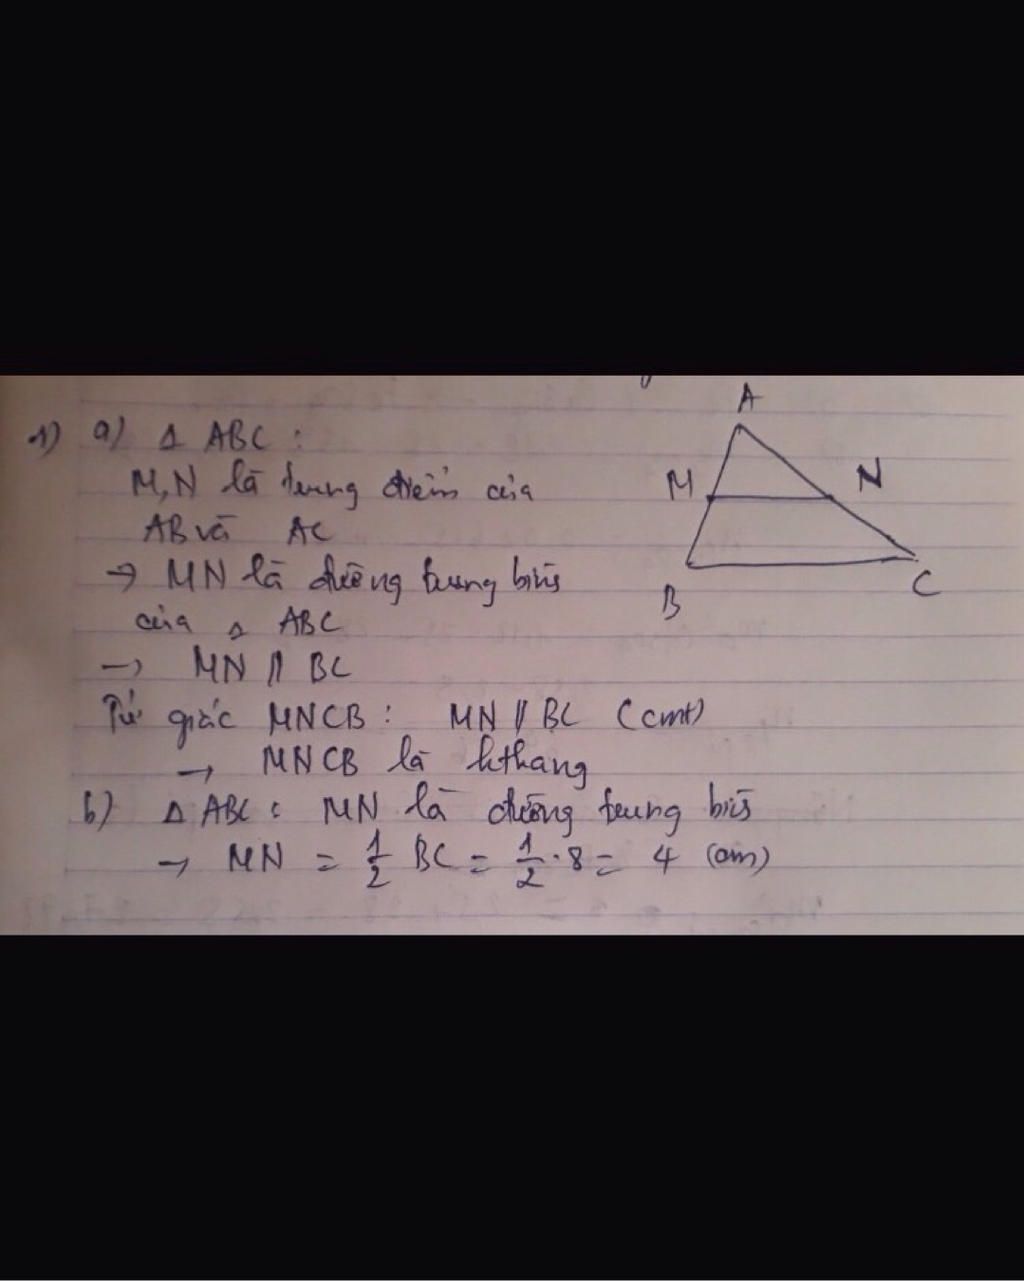 1) a) Δ ABC :
M, N là trung điểm của
AB và AC
→ MN là đường trung bình
của Δ ABC
→ MN // BC
Tứ giác MNCB : MN // BC (cmt)
→ MNCB là hthang
b) Δ ABC : MN là đường trung bình
→ MN = 1/2 BC = 1/2 . 8 = 4 (cm)
A
M N
B C